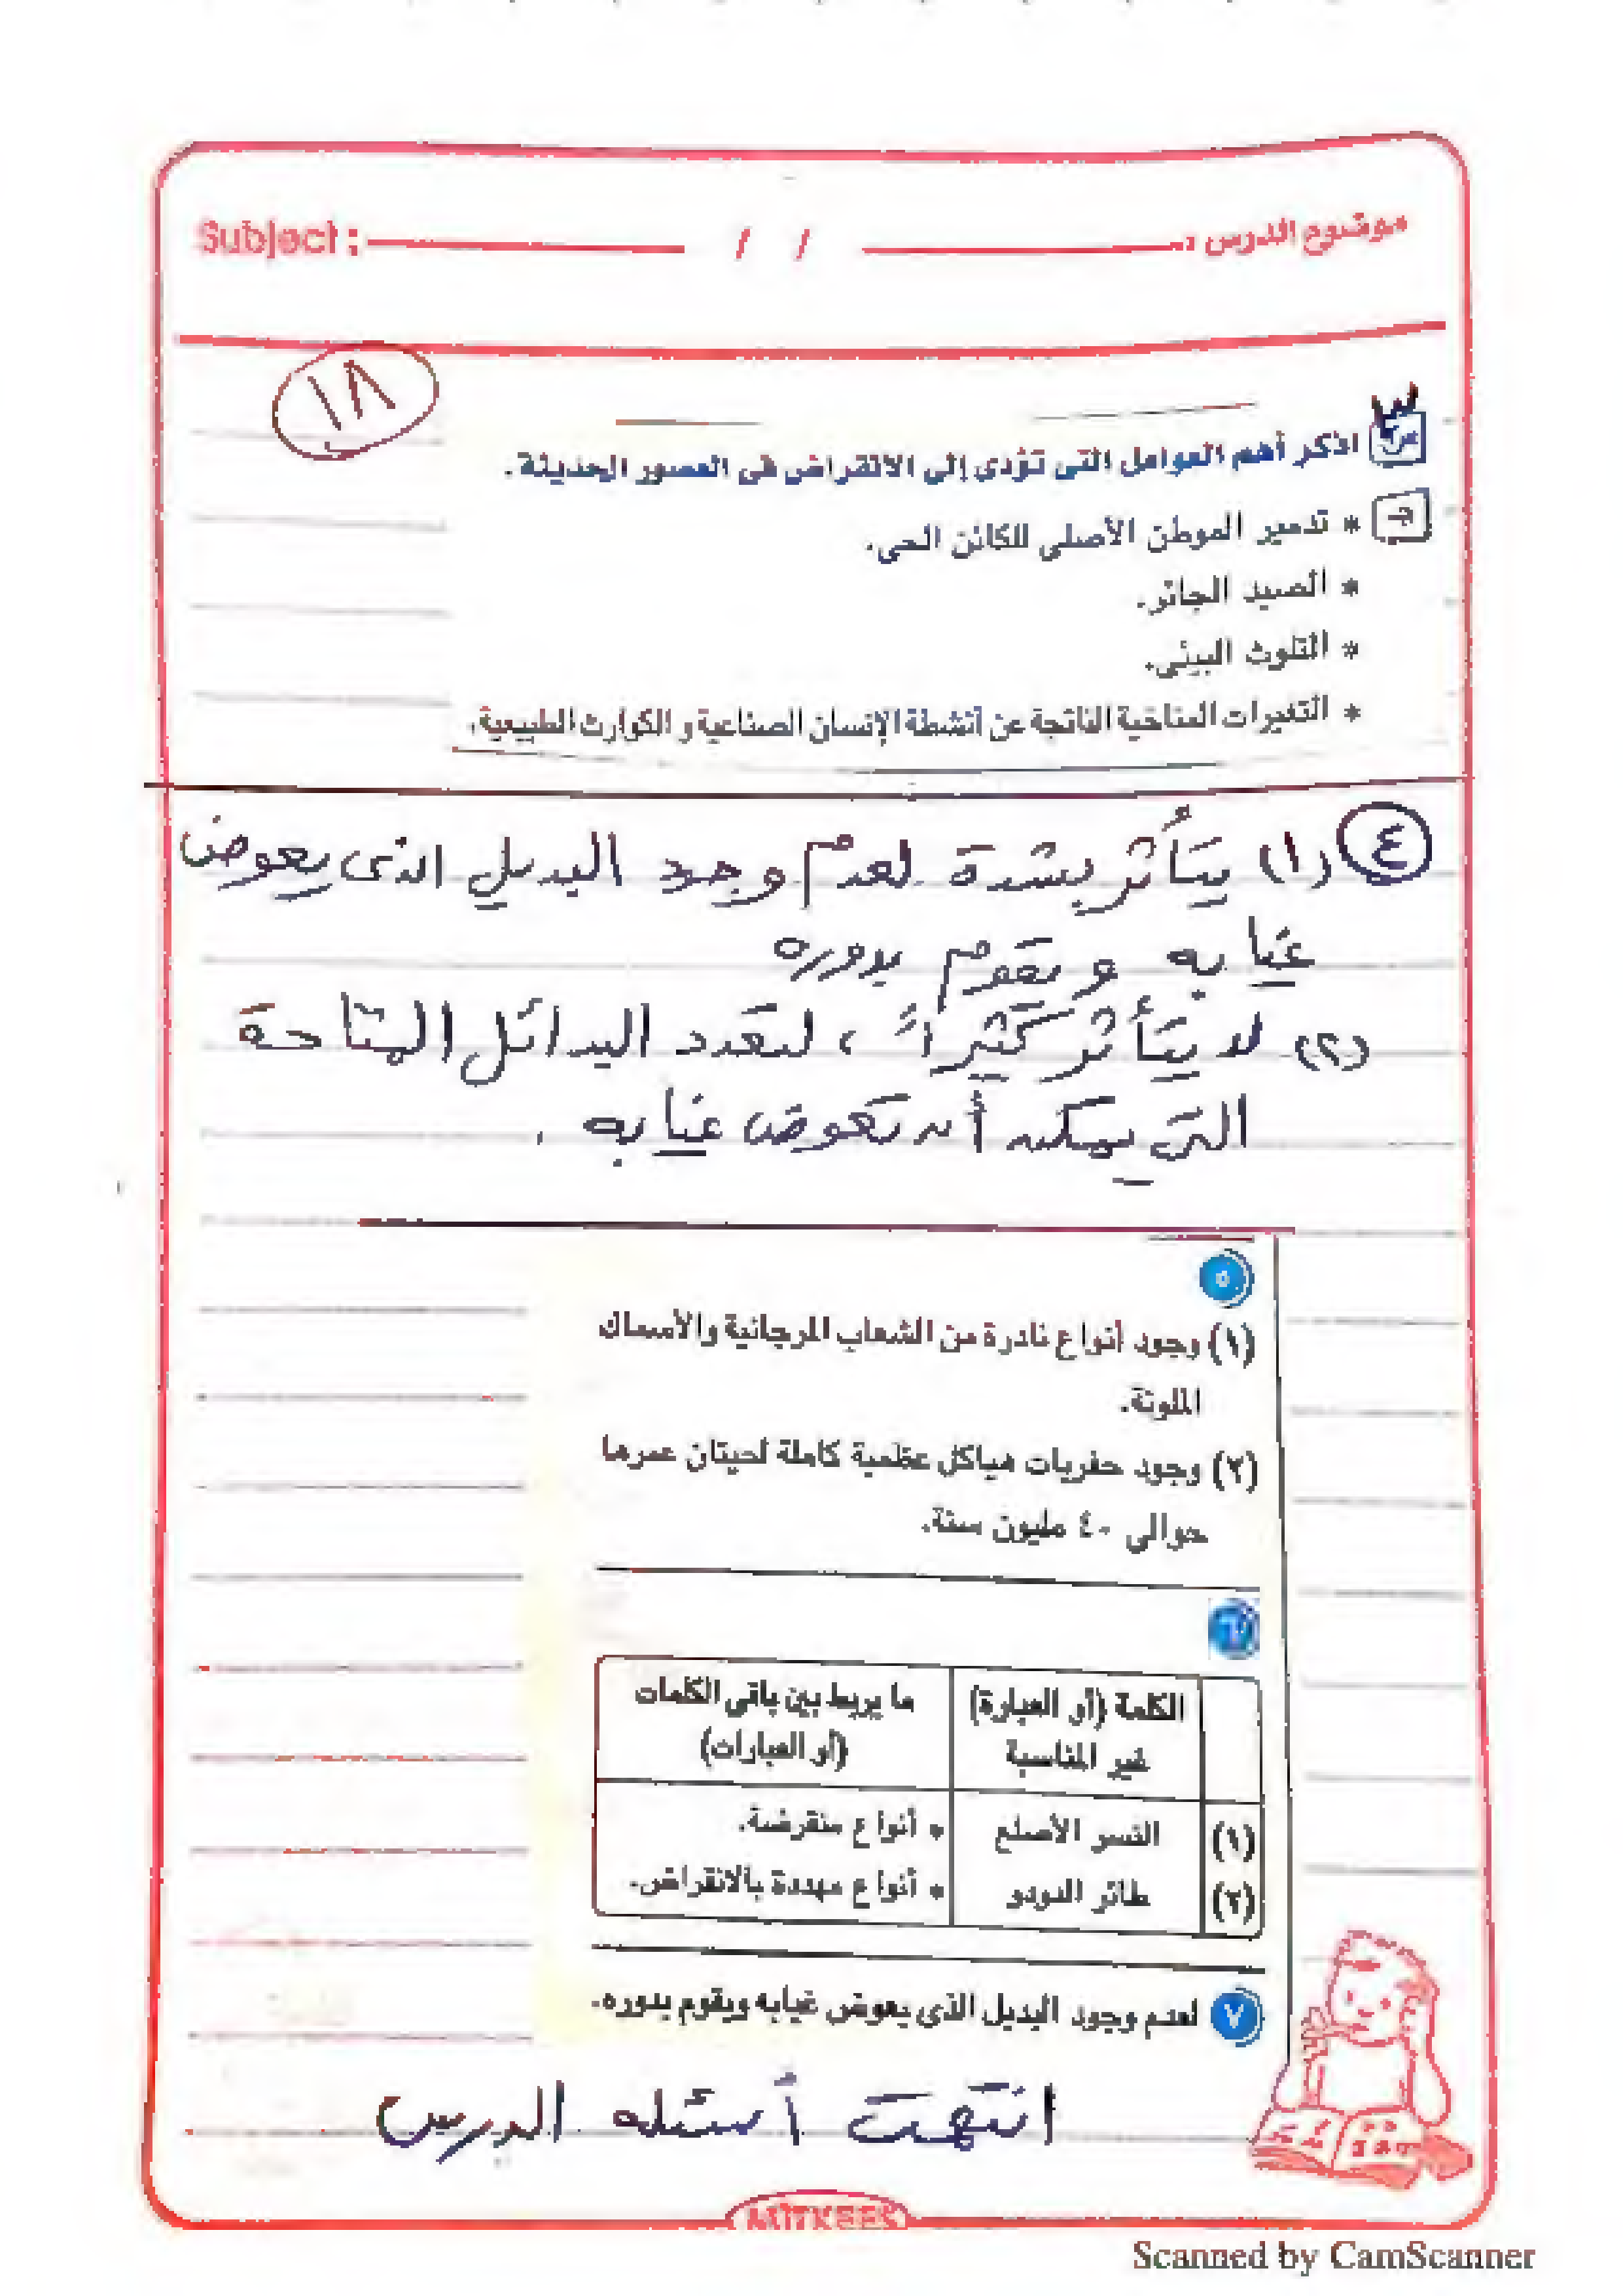 Subject : / / موضوع الدرس :
١٨
٣
س اذكر أهم العوامل التى تؤدى إلى الانقراض فى العصور الحديثة.
جـ * تدمير الموطن الأصلى للكائن الحى.
* الصيد الجائر.
* التلوث البيئى.
* التغيرات المناخية الناتجة عن أنشطة الإنسان الصناعية و الكوارث الطبيعية.
٤ (١) يتأثر بشدة لعدم وجود البديل الذى يعوض
غيابه و يقوم بدوره
(٢) لا يتأثر كثيراً ، لتعدد البدائل المتاحة
التى يمكن أن تعوض غيابه .
٥
(١) وجود أنواع نادرة من الشعاب المرجانية والأسماك
الملونة.
(٢) وجود حفريات هياكل عظمية كاملة لحيتان عمرها
حوالى ٤٠ مليون سنة.
٦
الكلمة (أو العبارة) ما يربط بين باقى الكلمات
غير المناسبة (أو العبارات)
(١) النسر الأصلع * أنواع منقرضة.
(٢) طائر الدودو * أنواع مهددة بالانقراض.
٧ لعدم وجود البديل الذى يعوض غيابه ويقوم بدوره.
انتهت أسئله الدرس
Scanned by CamScanner